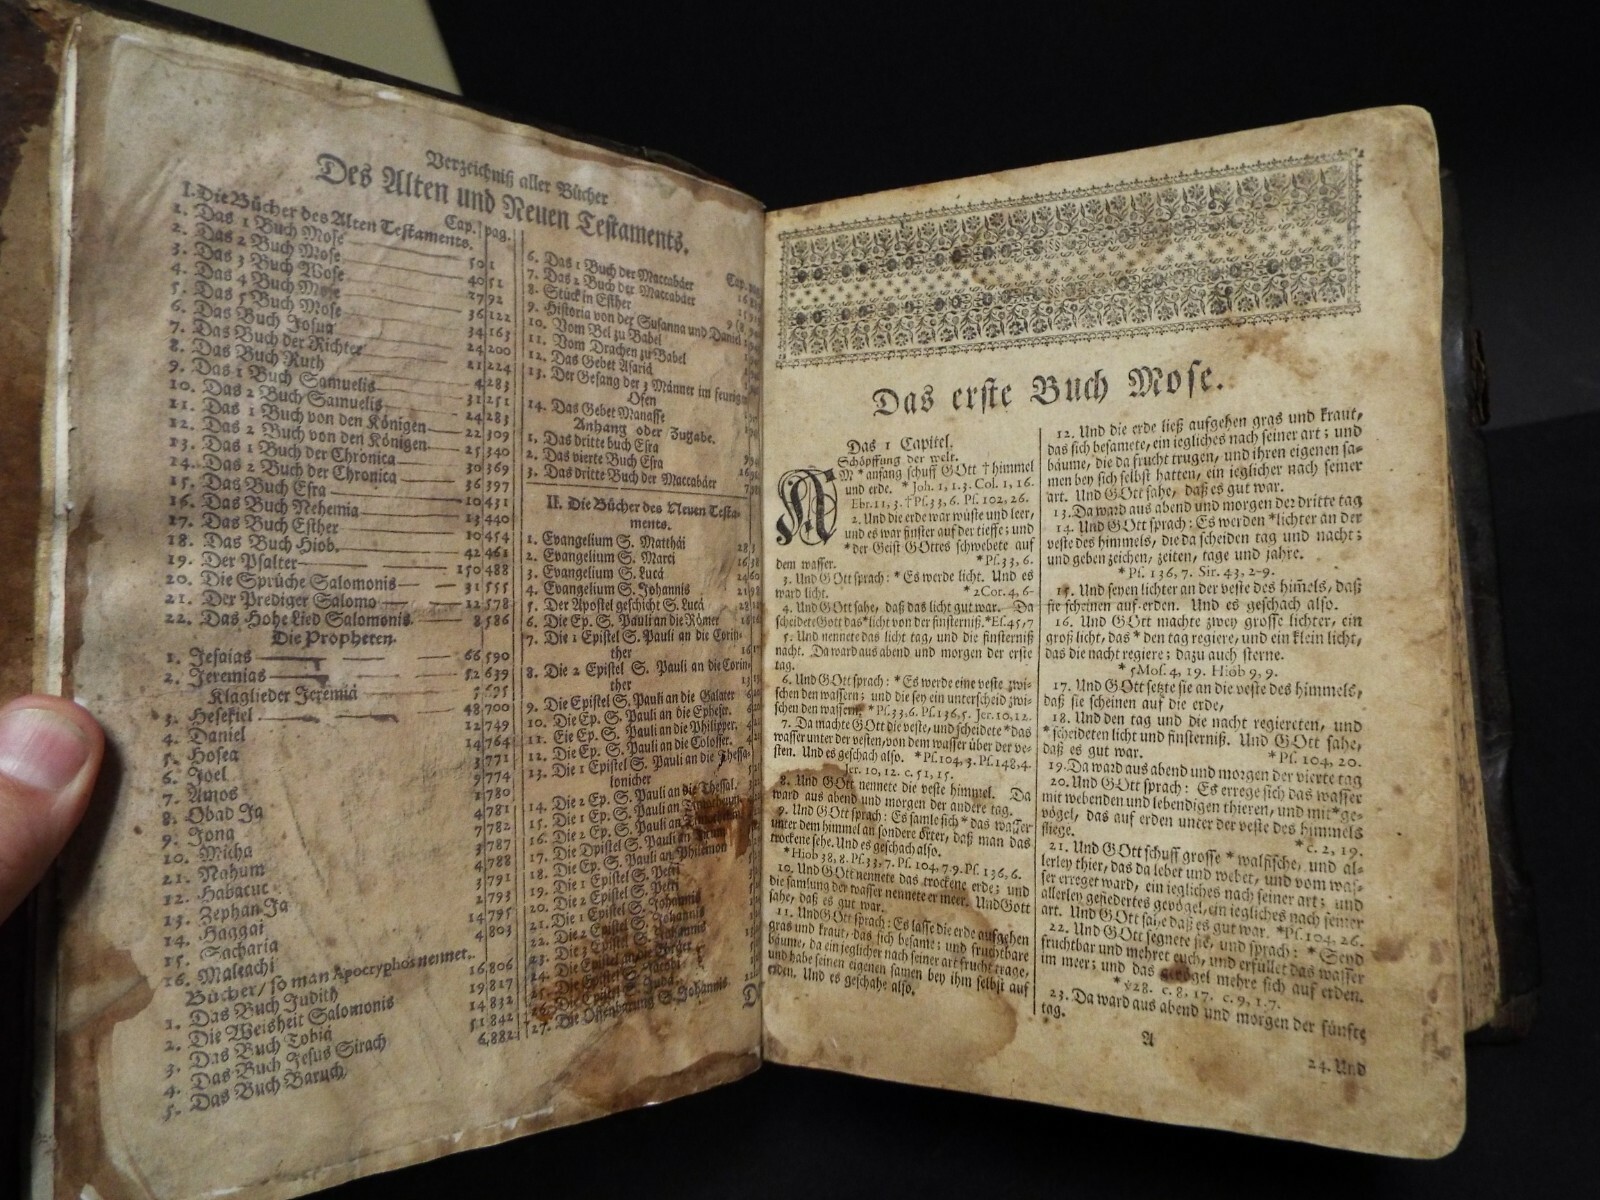 Verzeichniß aller Bücher
Des Alten und Neuen Testaments.
I. Die Bücher des Alten Testaments.
Cap. pag.
1. Das 1 Buch Mose 50 1
2. Das 2 Buch Mose 40 51
3. Das 3 Buch Mose 27 92
4. Das 4 Buch Mose 36 122
5. Das 5 Buch Mose 34 163
6. Das Buch Josua 24 200
7. Das Buch der Richter 21 224
8. Das Buch Ruth
9. Das 1 Buch Samuelis
10. Das 2 Buch Samuelis
11. Das 1 Buch von den Königen
12. Das 2 Buch von den Königen
13. Das 1 Buch der Chronica
14. Das 2 Buch der Chronica
15. Das Buch Esra
16. Das Buch Nehemia
17. Das Buch Esther
18. Das Buch Hiob. 42 461
19. Der Psalter 150 488
20. Die Sprüche Salomonis 31 555
21. Der Prediger Salomo 12 578
22. Das Hohe Lied Salomonis 8 586
Die Propheten.
1. Jesaias 66 590
2. Jeremias 52 639
Klaglieder Jeremiä
3. Hesekiel 48 700
4. Daniel
5. Hosea
6. Joel
7. Amos
8. Obad Ja
9. Jona
10. Micha
21. Nahum
12. Habacuc
13. Zephan Ja
14. Haggai
15. Sacharia
16. Maleachi
Bücher/ so man Apocryphos nennet.
1. Das Buch Judith
2. Die Weisheit Salomonis
3. Das Buch Tobiä
4. Das Buch Jesus Sirach
5. Das Buch Baruch
6. Das 1 Buch der Maccabäer
7. Das 2 Buch der Maccabäer
8. Stück in Esther
9. Historia von der Susanna und Daniel
10. Vom Bel zu Babel
11. Vom Drachen zu Babel
12. Das Gebet Asariä
13. Der Gesang der 3 Männer im feurigen
Ofen
14. Das Gebet Manasse
Anhang oder Zugabe.
1. Das dritte buch Esra
2. Das vierte Buch Esra
3. Das dritte Buch der Maccabäer
II. Die Bücher des Neuen Testa-
ments.
1. Evangelium S. Matthäi
2. Evangelium S. Marci
3. Evangelium S. Lucä
4. Evangelium S. Johannis
5. Der Apostel geschicht S. Lucä
6. Die Ep. S. Pauli an die Römer
7. Die 1 Epistel S. Pauli an die Corin-
ther
8. Die 2 Epistel S. Pauli an die Corin-
ther
9. Die Epistel S. Pauli an die Galater
10. Die Ep. S. Pauli an die Epheser.
11. Eie Ep. S. Pauli an die Philipper.
12. Die Ep. S. Pauli an die Colosser.
13. Die 1 Epistel S. Pauli an die Thessa-
lonicher
14. Die 2 Ep. S. Pauli an die Thessal.
15. Die 1 Ep. S. Pauli an
16. Die 2 Ep. S. Pauli an
17. Die Epistel S. Pauli an
18. Die Ep. S. Pauli an Philemon
19. Die 1 Epistel S. Petri
20. Die 2 Epistel S. Petri
21. Die 1 Epistel S. Johannis
22. Die 2 Epistel S. Johannis
Die 3 Epistel S. Johannis
27. Die Offenbarung S. Johannis
Das erste Buch Mose.
Das 1 Capitel.
Schöpffung der welt.
AM * anfang schuff GOtt † himmel
und erde. * Joh. 1, 1.3. Col. 1, 16.
Ebr. 11, 3. † Ps. 33, 6. Ps. 102, 26.
2. Und die erde war wüste und leer,
und es war finster auf der tieffe; und
* der Geist GOttes schwebete auf
dem wasser. * Ps. 33, 6.
3. Und GOtt sprach: * Es werde licht. Und es
ward licht. * 2 Cor. 4, 6.
4. Und GOtt sahe, daß das licht gut war. Da
scheidete Gott das * licht von der finsterniß. * Es. 45, 7
5. Und nennete das licht tag, und die finsterniß
nacht. Da ward aus abend und morgen der erste
tag.
6. Und GOtt sprach: * Es werde eine veste zwi-
schen den wassern; und die sey ein unterscheid zwi-
schen den wassern. * Ps. 33, 6. Ps. 136, 5. Jer. 10, 12.
7. Da machte GOtt die veste, und scheidete * das
wasser unter der vesten, von dem wasser über der ve-
sten. Und es geschach also. * Ps. 104, 3. Ps. 148, 4.
Jer. 10, 12. c. 51, 15.
8. Und GOtt nennete die veste himmel. Da
ward aus abend und morgen der andere tag.
9. Und GOtt sprach: Es samle sich * das wasser
unter dem himmel an sondere örter, daß man das
trockene sehe. Und es geschach also.
* Hiob 38, 8. Ps. 33, 7. Ps. 104, 7.9. Ps. 136, 6.
10. Und GOtt nennete das trockene erde; und
die samlung der wasser nennete er meer. Und Gott
sahe, daß es gut war.
11. Und GOtt sprach: Es lasse die erde aufgehen
gras und kraut, das sich besame; und fruchtbare
bäume, da ein jeglicher nach seiner art frucht trage,
und habe seinen eigenen samen bey ihm selbst auf
erden. Und es geschahe also.
12. Und die erde ließ aufgehen gras und kraut,
das sich besamete, ein iegliches nach seiner art; und
bäume, die da frucht trugen, und ihren eigenen sa-
men bey sich selbst hatten, ein ieglicher nach seiner
art. Und GOtt sahe, daß es gut war.
13. Da ward aus abend und morgen der dritte tag
14. Und GOtt sprach: Es werden * lichter an der
veste des himmels, die da scheiden tag und nacht;
und geben zeichen, zeiten, tage und jahre.
* Ps. 136, 7. Sir. 43, 2-9.
15. Und seyen lichter an der veste des him̃els, daß
sie scheinen auf erden. Und es geschach also.
16. Und GOtt machte zwey grosse lichter, ein
groß licht, das * den tag regiere, und ein klein licht,
das die nacht regiere; dazu auch sterne.
* 5 Mos. 4, 19. Hiob 9, 9.
17. Und GOtt setzte sie an die veste des himmels,
daß sie scheinen auf die erde,
18. Und den tag und die nacht regiereten, und
* scheideten licht und finsterniß. Und GOtt sahe,
daß es gut war. * Ps. 104, 20.
19. Da ward aus abend und morgen der vierte tag
20. Und GOtt sprach: Es errege sich das wasser
mit webenden und lebendigen thieren, und mit * ge-
vögel, das auf erden unter der veste des himmels
fliege. * c. 2, 19.
21. Und GOtt schuff grosse * walfische, und al-
lerley thier, das da lebet und webet, und vom was-
ser erreget ward, ein iegliches nach seiner art; und
allerley gefiedertes gevögel, ein iegliches nach seiner
art. Und GOtt sahe daß es gut war. * Ps. 104, 26.
22. Und GOtt segnete sie, und sprach: * Seyd
fruchtbar und mehret euch, und erfüllet das wasser
im meer; und das gevögel mehre sich auf erden.
* v. 28. c. 8, 17. c. 9, 1.7.
23. Da ward aus abend und morgen der fünfte
tag.
A
24. Und